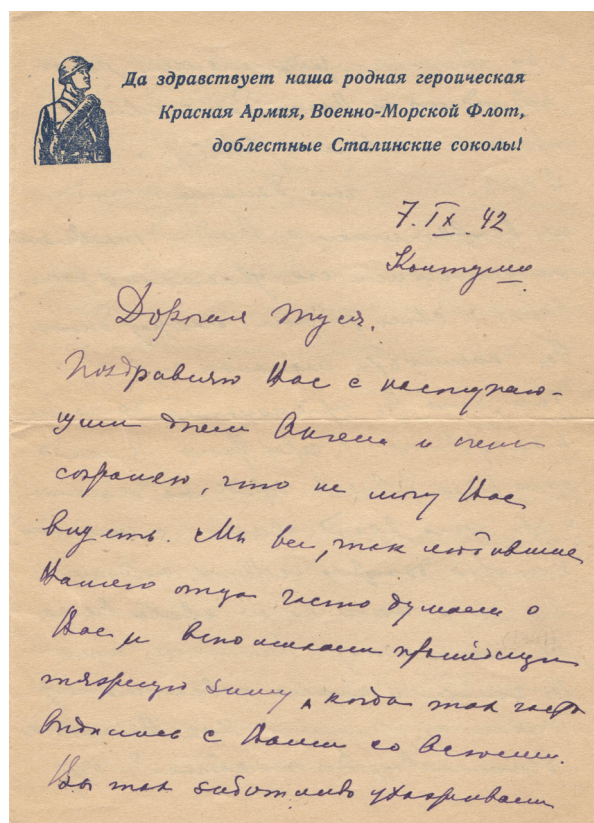 Да здравствует наша родная героическая
Красная Армия, Военно-Морской Флот,
доблестные Сталинские соколы!
7.IX.42
Колтуши
Дорогая Туся,
Поздравляю Вас с наступаю-
щим днем Ангела и очень
сожалею, что не могу Вас
видеть. Мы все, так любившие
Вашего отца часто думаем о
Вас и вспоминаем прошедшую
тяжелую зиму, когда так часто
виделись с Вами со всеми.
Вы так заботливо ухаживали